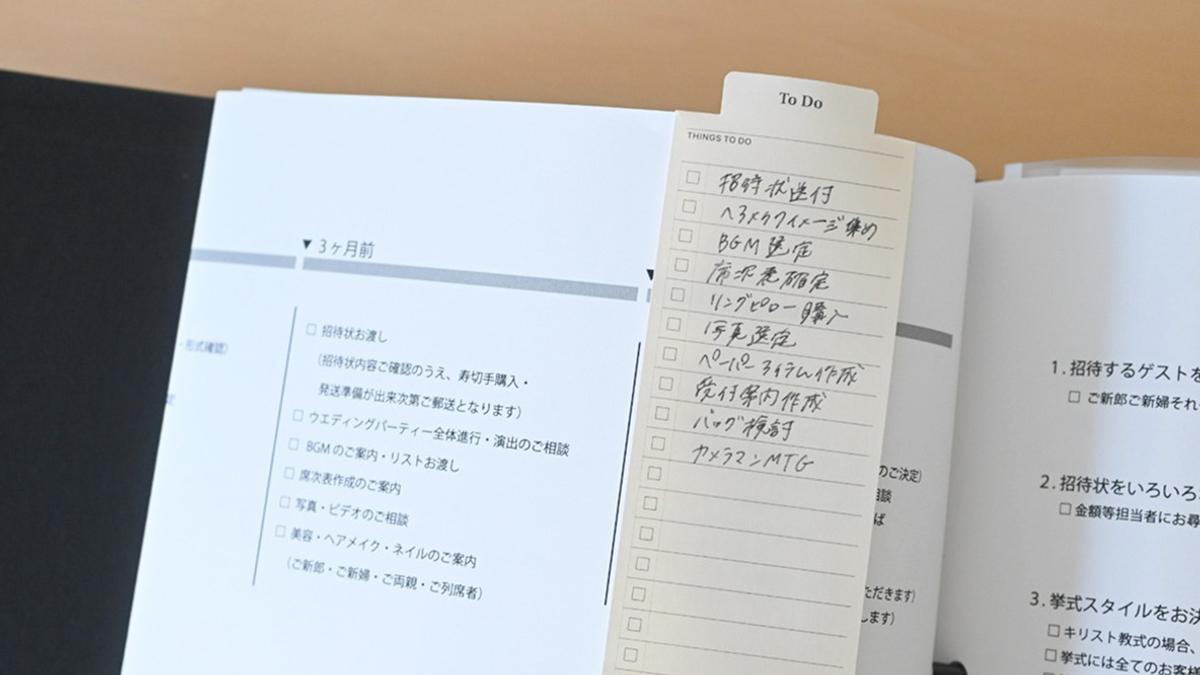 To Do
THINGS TO DO
招待状送付
ヘアメクイメージ集め
BGM選定
席次表確定
リングピロー購入
写真選定
ペーパーアイテム作成
受付案内作成
検討
カメラマンMTG
・形式確認）
定
▼3ヶ月前
□ 招待状お渡し
（招待状内容ご確認のうえ、寿切手購入・
発送準備が出来次第ご郵送となります）
□ ウエディングパーティー全体進行・演出のご相談
□ BGMのご案内・リストお渡し
□ 席次表作成のご案内
□ 写真・ビデオのご相談
□ 美容・ヘアメイク・ネイルのご案内
（ご新郎・ご新婦・ご両親・ご列席者）
のご決定）
相談
ば
ただきます）
します）
1. 招待するゲストを
□ ご新郎ご新婦それ
2. 招待状をいろいろ
□ 金額等担当者にお尋
3. 挙式スタイルをお決
□ キリスト教式の場合、
□ 挙式には全てのお客様